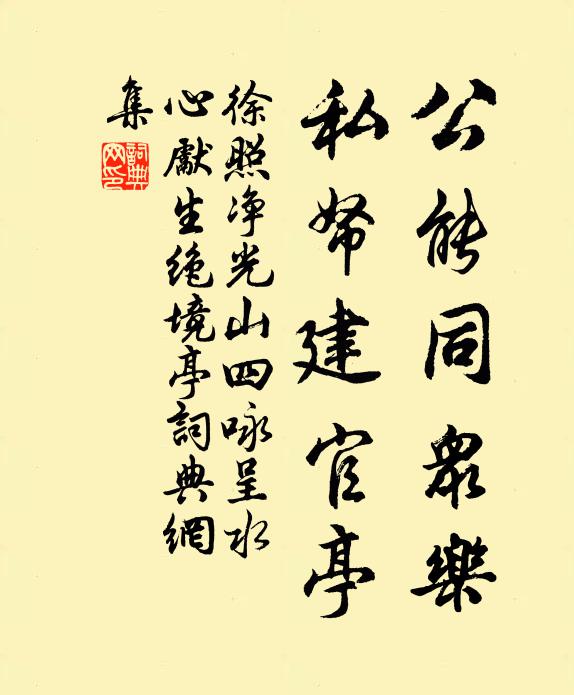 公能同眾樂
私帑建官亭
徐照净光山四咏呈水
心獻生絶境亭詞典網
集
詞典
网印